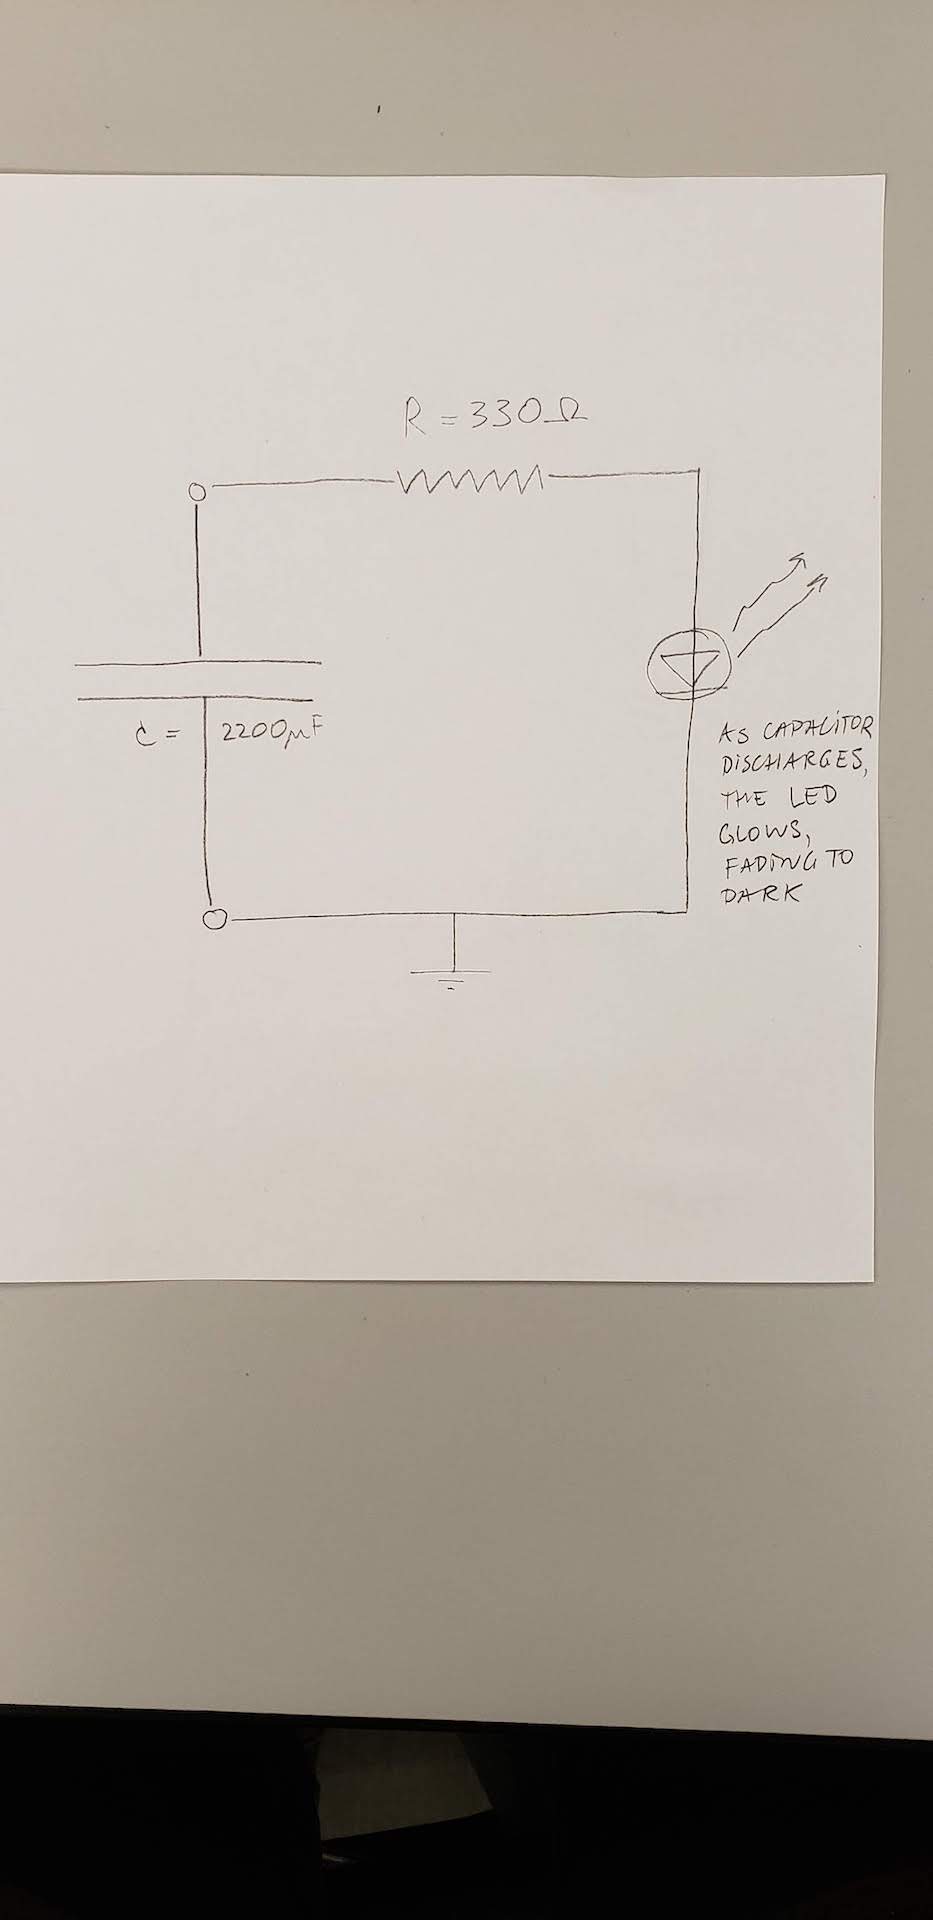 R = 330Ω
C = 2200µF
AS CAPACITOR
DISCHARGES,
THE LED
GLOWS,
FADING TO
DARK